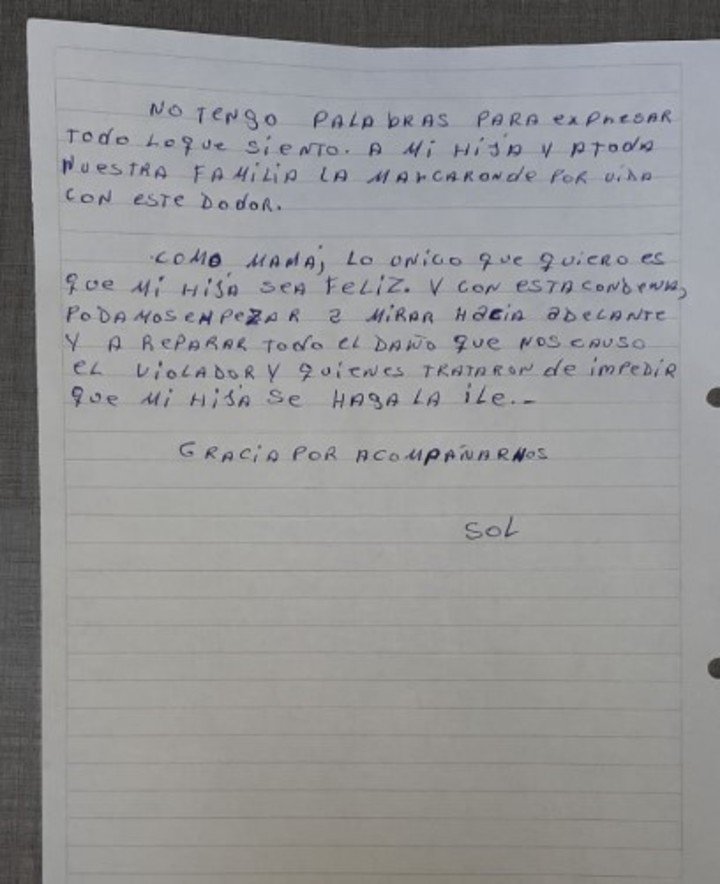 NO TENGO PALABRAS PARA exPRESAR
TODO LOQUE SIENTO. A MI HIJA Y ATODA
NUESTRA FAMILIA LA MARCARONde POR VIDA
CON ESTE DODOR.
COMO MAMÁ, LO UNICO que quiero es
que MI HIJA SEA FELIZ. Y CON ESTACONDENA,
PODAMOSEMPEZAR a MIRAR HaCIA aDELANTE
Y A REPARAR TODO EL DAÑO que NOSCAUSO
EL VIOLADOR Y QUIENES TRATARON de IMPEDIR
que MI HIJA SE HAGA LA ILE.-
GRACIA POR ACOMPAÑARNOS
SOL